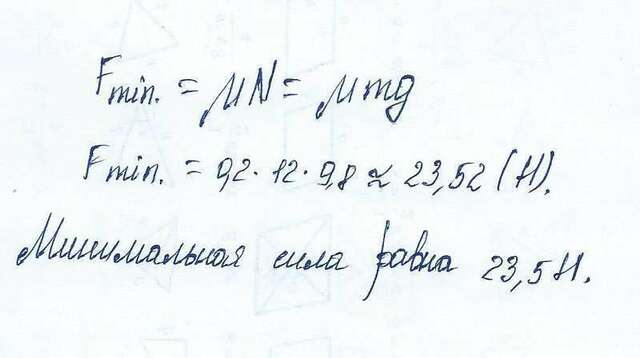 Fmin. = μN = μmg
Fmin. = 0,2 · 12 · 9,8 ≈ 23,52 (Н).
Минимальная сила равна 23,5 Н.